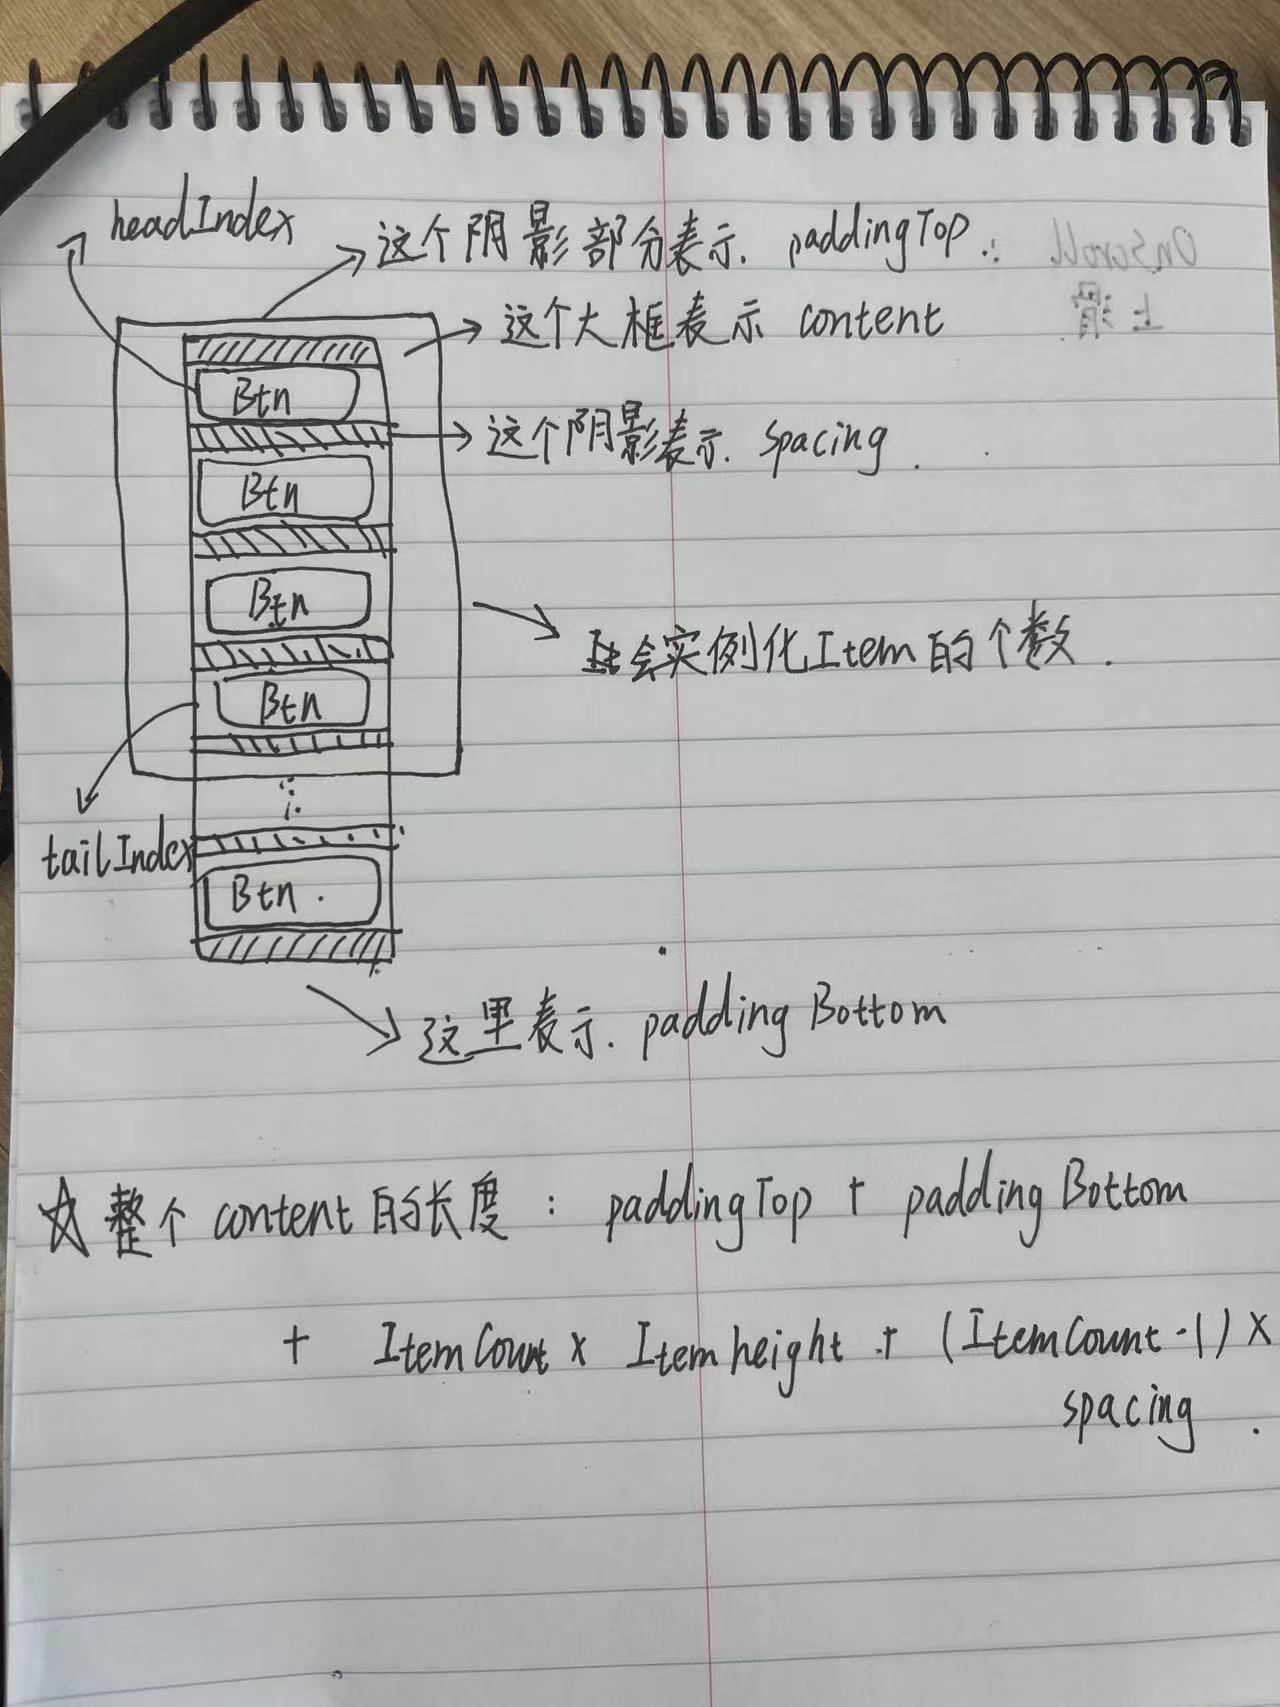 headIndex
这个阴影部分表示. paddingTop.
这个大框表示 content
Btn
这个阴影表示. spacing.
Btn
Btn
会实例化Item的个数.
Btn
tailIndex
Btn.
这里表示. paddingBottom
☆整个content的长度: paddingTop + paddingBottom
+ ItemCount x Itemheight + (ItemCount-1) x
spacing.
OnScroll
上滑